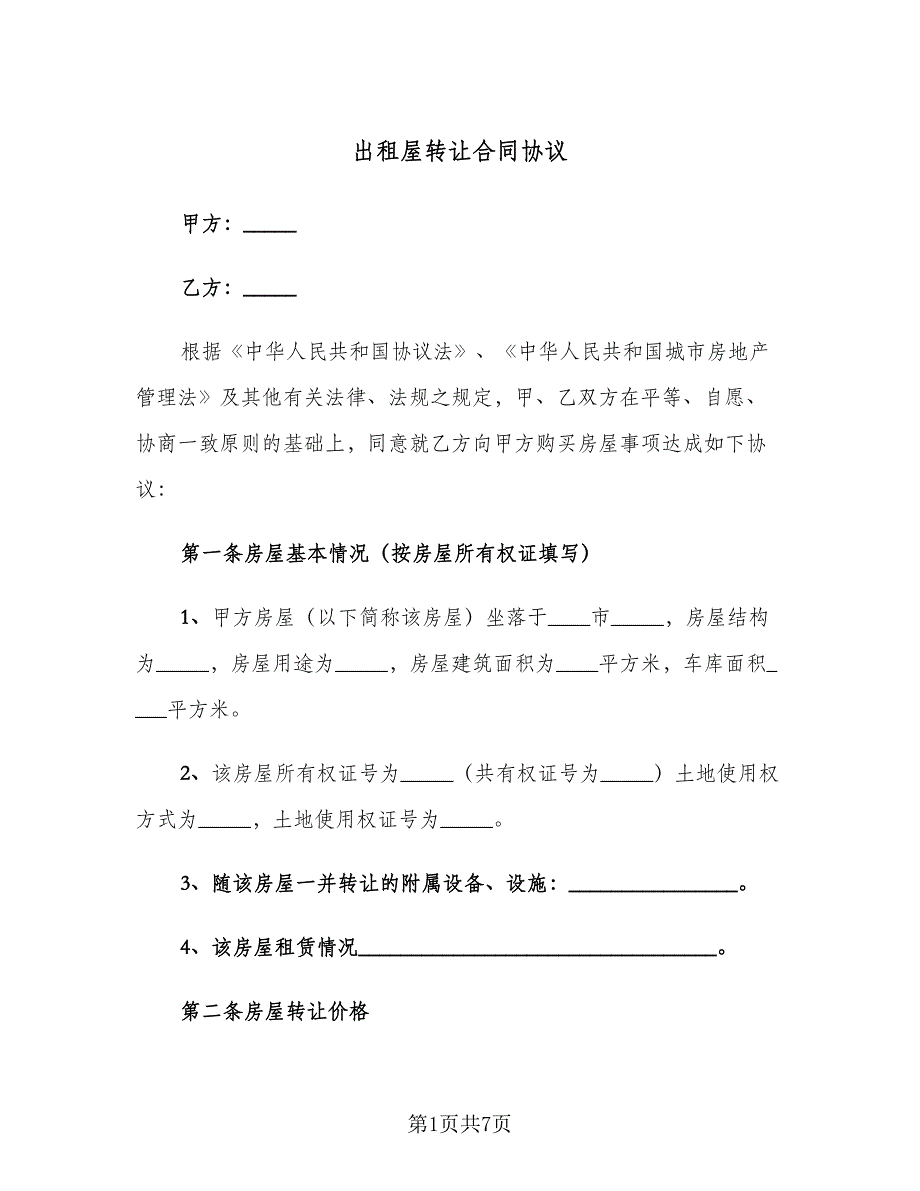 出租屋转让合同协议
甲方：_____
乙方：_____
根据《中华人民共和国协议法》、《中华人民共和国城市房地产
管理法》及其他有关法律、法规之规定，甲、乙双方在平等、自愿、
协商一致原则的基础上，同意就乙方向甲方购买房屋事项达成如下协
议：
第一条房屋基本情况（按房屋所有权证填写）
1、甲方房屋（以下简称该房屋）坐落于____市_____，房屋结构
为_____，房屋用途为_____，房屋建筑面积为____平方米，车库面积_
___平方米。
2、该房屋所有权证号为_____（共有权证号为_____）土地使用权
方式为_____，土地使用权证号为_____。
3、随该房屋一并转让的附属设备、设施：________________。
4、该房屋租赁情况__________________________________。
第二条房屋转让价格
第1页共7页